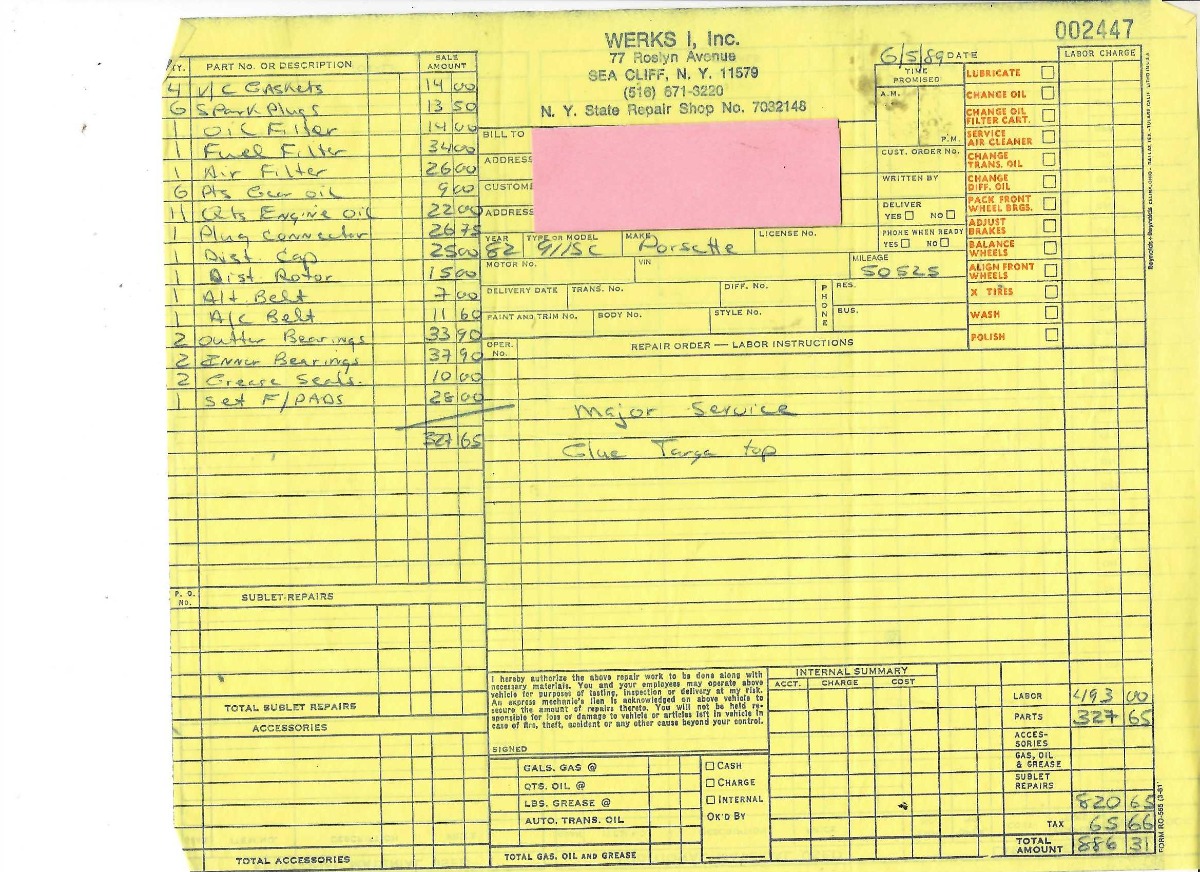 002447
WERKS I, Inc.
77 Roslyn Avenue
SEA CLIFF, N. Y. 11579
(516) 671-3220
N. Y. State Repair Shop No. 7032148
6/5/89 DATE
TIME PROMISED
A.M.
P.M.
CUST. ORDER No.
WRITTEN BY
DELIVER
YES NO
PHONE WHEN READY
YES NO
LABOR CHARGE
LUBRICATE
CHANGE OIL
CHANGE OIL FILTER CART.
SERVICE AIR CLEANER
CHANGE TRANS. OIL
CHANGE DIFF. OIL
PACK FRONT WHEEL BRGS.
ADJUST BRAKES
BALANCE WHEELS
ALIGN FRONT WHEELS
X TIRES
WASH
POLISH
BILL TO
ADDRESS
CUSTOME
ADDRESS
YEAR TYPE OR MODEL MAKE LICENSE No.
82 911SC Porsche
MOTOR No. VIN MILEAGE
50525
DELIVERY DATE TRANS. No. DIFF. No. PHONE RES.
PAINT AND TRIM No. BODY No. STYLE No. BUS.
TY. PART No. OR DESCRIPTION SALE AMOUNT
4 V/C Gaskets 14 00
6 Spark Plugs 13 50
1 Oil Filter 14 00
1 Fuel Filter 34 00
1 Air Filter 26 00
6 Pts Gear oil 9 00
11 Qts Engine oil 22 00
1 Plug Connector 26 75
1 Dist. Cap 25 00
1 Dist. Rotor 15 00
1 Alt Belt 7 00
1 A/C Belt 11 60
2 Outter Bearings 33 90
2 Inner Bearings 37 90
2 Grease Seals. 10 00
1 Set F/PADS 28 00
327 65
OPER. No. REPAIR ORDER — LABOR INSTRUCTIONS
Major Service
Glue Targa top
P. O. No. SUBLET REPAIRS
TOTAL SUBLET REPAIRS
ACCESSORIES
TOTAL ACCESSORIES
I hereby authorize the above repair work to be done along with
necessary materials. You and your employees may operate above
vehicle for purposes of testing, inspection or delivery at my risk.
An express mechanic's lien is acknowledged on above vehicle to
secure the amount of repairs thereto. You will not be held re-
sponsible for loss or damage to vehicle or articles left in vehicle in
case of fire, theft, accident or any other cause beyond your control.
SIGNED
GALS. GAS @
QTS. OIL @
LBS. GREASE @
AUTO. TRANS. OIL
TOTAL GAS, OIL AND GREASE
CASH
CHARGE
INTERNAL
OK'D BY
INTERNAL SUMMARY
ACCT. CHARGE COST
LABOR 493 00
PARTS 327 65
ACCES-SORIES
GAS, OIL & GREASE
SUBLET REPAIRS
820 65
TAX 65 66
TOTAL AMOUNT 886 31
FORM RO-565 (3-81)